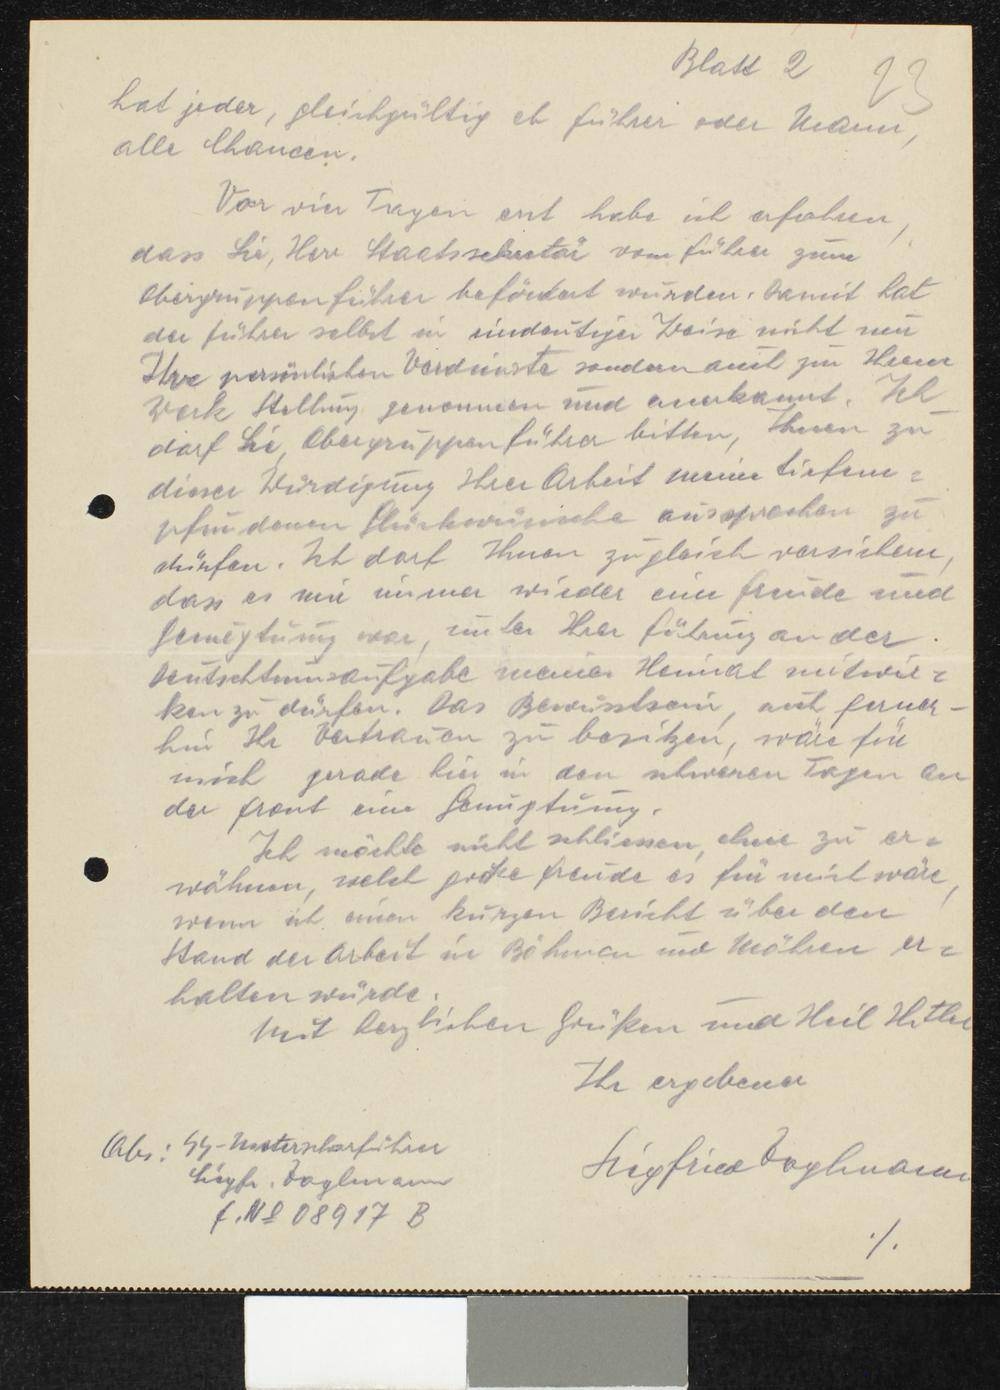 Blatt 2
23
hat jeder, gleichgültig ob Führer oder Mann,
alle Chancen.
Vor vier Tagen erst habe ich erfahren,
dass Sie, Herr Staatssekretär vom Führer zum
Obergruppenführer befördert wurden. Damit hat
der Führer selbst in eindeutiger Weise nicht nur
Ihre persönlichen Verdienste sondern auch zu Ihrem
Werk Stellung genommen und anerkannt. Ich
darf Sie, Obergruppenführer bitten, Ihnen zu
dieser Würdigung Ihrer Arbeit meine tiefem=
pfundenen Glückwünsche aussprechen zu
dürfen. Ich darf Ihnen zugleich versichern,
dass es mir immer wieder eine Freude und
Genugtuung war, unter Ihrer Führung an der
Deutschtumsaufgabe meiner Heimat mitwir=
ken zu dürfen. Das Bewusstsein, auch ferner-
hin Ihr Vertrauen zu besitzen, wäre für
mich gerade hier in den schweren Tagen an
der Front eine Genugtuung.
Ich möchte nicht schliessen, ohne zu er=
wähnen, welch große Freude es für mich wäre,
wenn ich einen kurzen Bericht über den
Stand der Arbeit in Böhmen und Mähren er=
halten würde.
Mit herzlichen Grüßen und Heil Hitler
Ihr ergebener
Siegfried Zoglmann
Abs: SS-Unterscharführer
Siegfr. Zoglmann
f. No 08917 B
./.